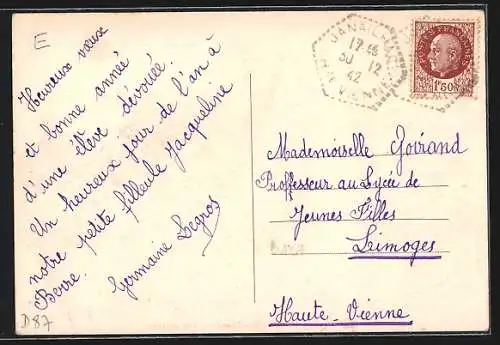 E
Heureux vœux
et bonne année
d'une élève dévouée.
Un heureux jour de l'an à
notre petite filleule Jacqueline
Germaine Legros
D87
17 45
30 12
42
POSTES FRANÇAISES
1F50
Mademoiselle Goirand
Professeur au Lycée de
Jeunes Filles
Limoges
Haute-Vienne